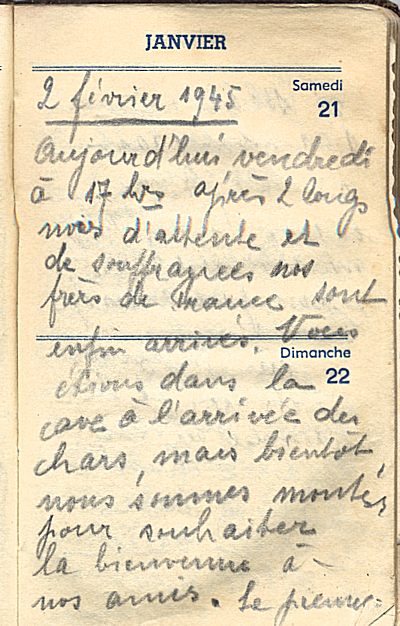 JANVIER
Samedi
21
2 février 1945
Aujourd'hui vendredi
à 17 hrs après 2 longs
mois d'attente et
de souffrances nos
frères de France sont
enfin arrivés. Nous
Dimanche
22
étions dans la
cave à l'arrivée des
chars, mais bientôt,
nous sommes montés
pour souhaiter
la bienvenue à
nos amis. Le premier